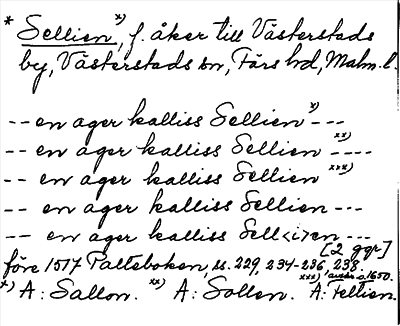 * Sellien x), f. åker till Västerstads
by, Västerstads sn, Färs hd, Malm. l.
-- en ager kalliss Sellien x) ---
-- en ager kalliss Sellien xx) ----
-- en ager kalliss Sellien xxx)
-- en ager kalliss Sellien ---
-- en ager kalliss Sell<i>en --
[2 ggr]
före 1517 Palteboken, ss. 229, 234-236, 238.
x) A: Sallon. xx) A: Sollen. xxx) avskr. o. 1650. A: Fellien.